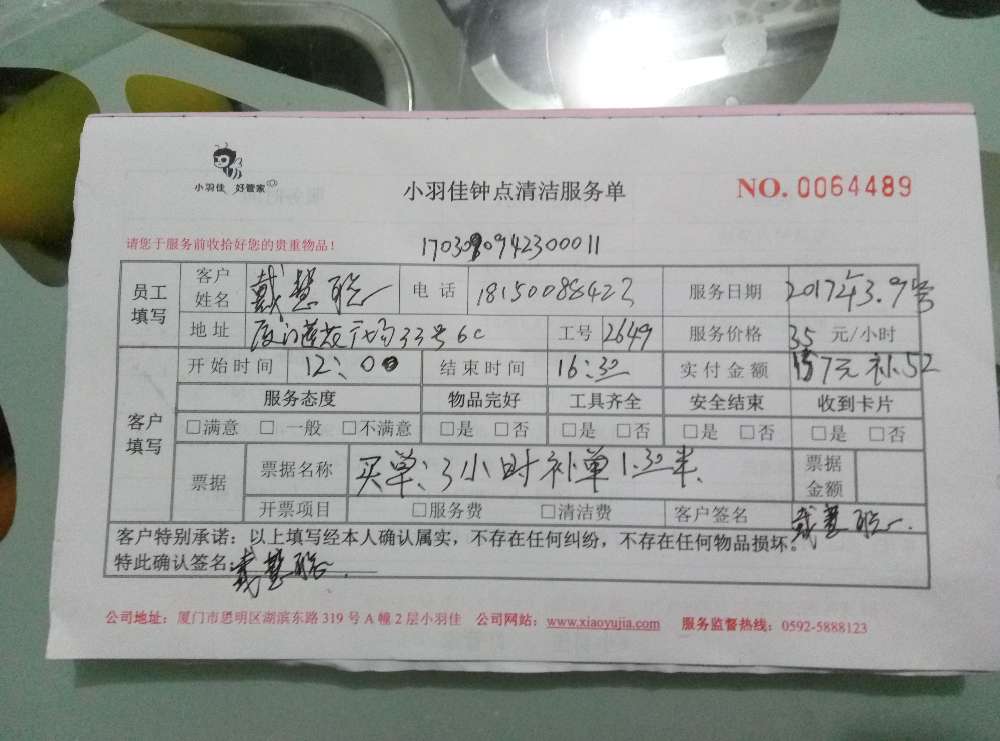 小羽佳 好管家
小羽佳钟点清洁服务单
NO. 0064489
请您于服务前收拾好您的贵重物品！
员工填写 客户姓名 戴慧聪 电话 18150088423 服务日期 2017年3.9号
地址 厦门莲花 33号6C 工号 2649 服务价格 35 元/小时
客户填写 开始时间 12:00 结束时间 16:30 实付金额 157元补.52
服务态度 物品完好 工具齐全 安全结束 收到卡片
□满意 □一般 □不满意 □是 □否 □是 □否 □是 □否 □是 □否
票据 票据名称 买单:3小时补单1.30半 票据金额
开票项目 □服务费 □清洁费 客户签名 戴慧聪
客户特别承诺：以上填写经本人确认属实，不存在任何纠纷，不存在任何物品损坏。
特此确认签名: 戴慧聪
公司地址：厦门市思明区湖滨东路319号A幢2层小羽佳 公司网站：www.xiaoyujia.com 服务监督热线：0592-5888123